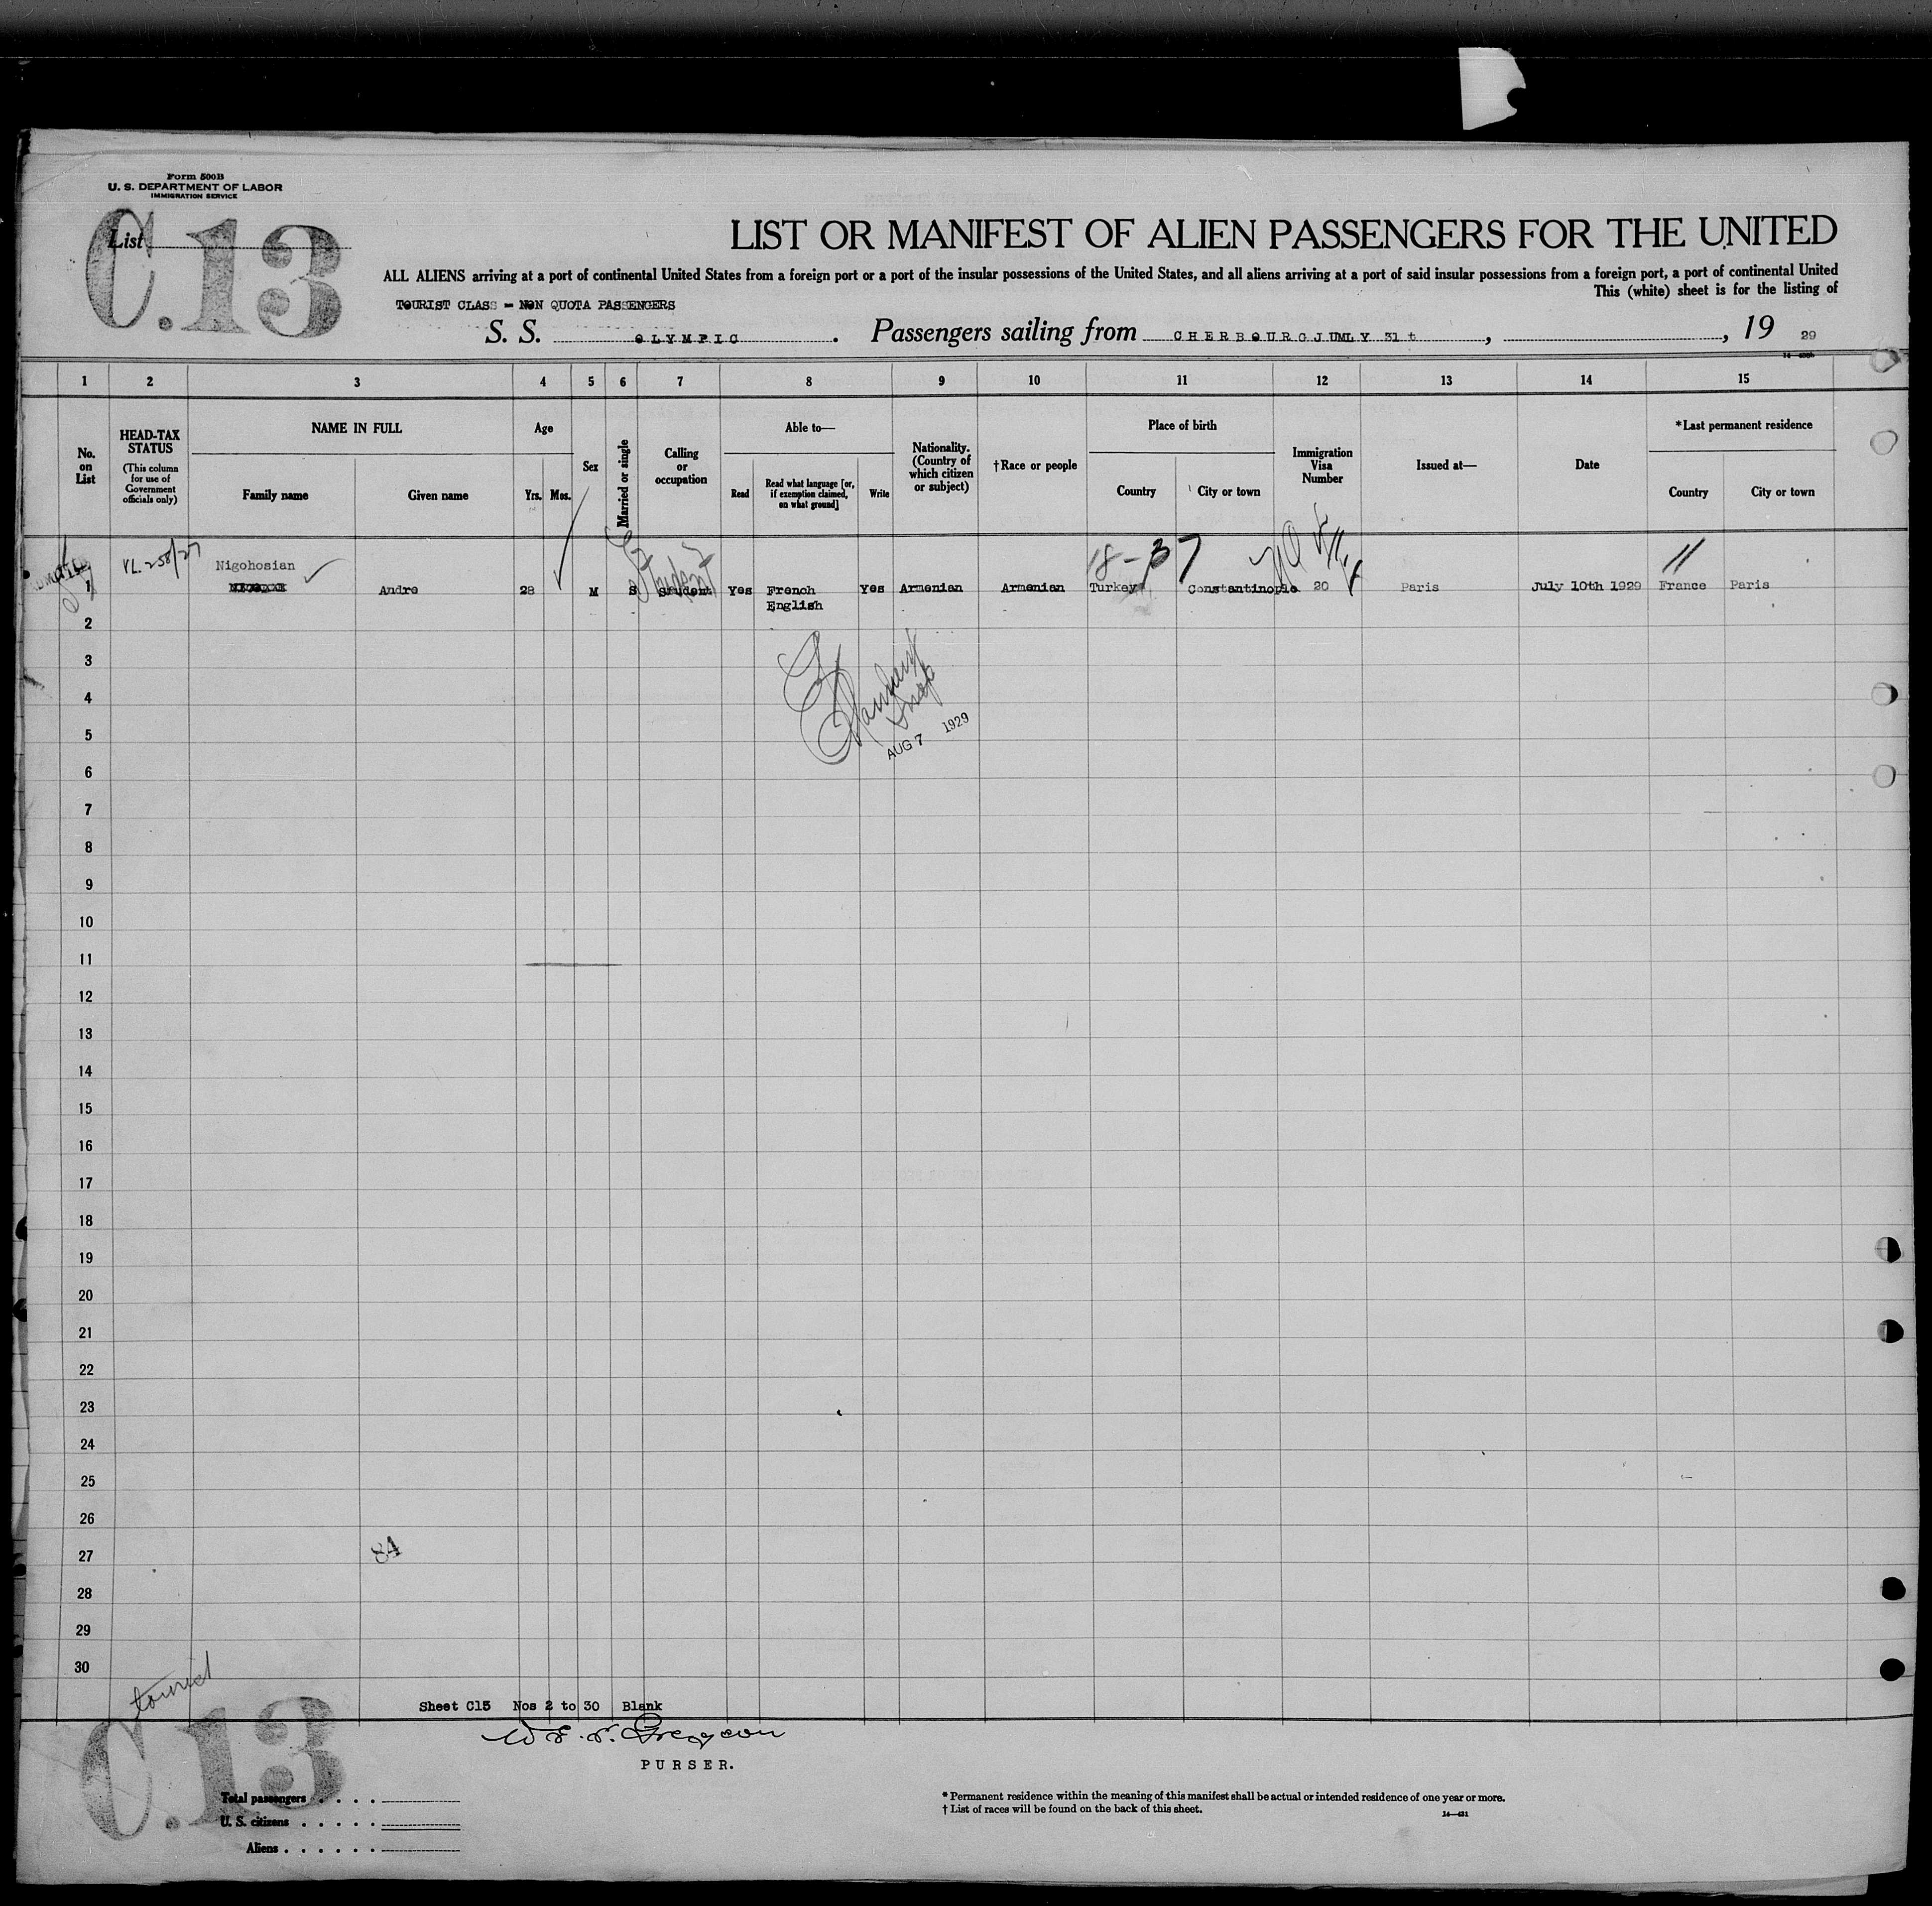 Form 500B
U. S. DEPARTMENT OF LABOR
IMMIGRATION SERVICE
C.13
List
LIST OR MANIFEST OF ALIEN PASSENGERS FOR THE UNITED
ALL ALIENS arriving at a port of continental United States from a foreign port or a port of the insular possessions of the United States, and all aliens arriving at a port of said insular possessions from a foreign port, a port of continental United
This (white) sheet is for the listing of
TOURIST CLASS - NON QUOTA PASSENGERS
S. S. OLYMPIC. Passengers sailing from CHERBOURG JUMLY 31t, , 19 29
1 2 3 4 5 6 7 8 9 10 11 12 13 14 15
No. on List
HEAD-TAX STATUS
(This column for use of Government officials only)
NAME IN FULL
Family name Given name
Age
Yrs. Mos.
Sex
Married or single
Calling or occupation
Able to—
Read
Read what language [or, if exemption claimed, on what ground]
Write
Nationality. (Country of which citizen or subject)
†Race or people
Place of birth
Country City or town
Immigration Visa Number
Issued at—
Date
*Last permanent residence
Country City or town
VL. 258/27 Nigohosian 18-37 11
1 Andre 28 M S Student Yes French Yes Armenian Armenian Turkey Constantinople 20 Paris July 10th 1929 France Paris
English
Student
2
3
4
5
AUG 7 1929
6
7
8
9
10
11
12
13
14
15
16
17
18
19
20
21
22
23
24
25
26
27
84
28
29
30
tourist
Sheet C13 Nos 2 to 30 Blank
PURSER.
C.13
Total passengers
U. S. citizens
Aliens
* Permanent residence within the meaning of this manifest shall be actual or intended residence of one year or more.
† List of races will be found on the back of this sheet.